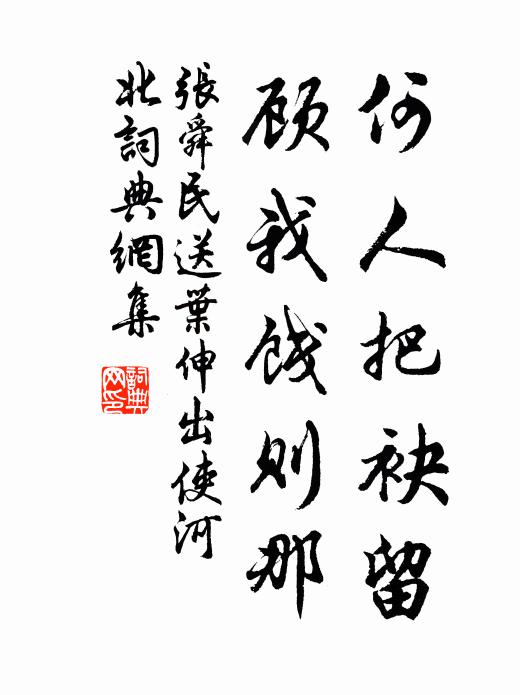 何人把袂留
顾我饯则那
張舜民送葉伸出使河
北詞典網集
詞典
网印